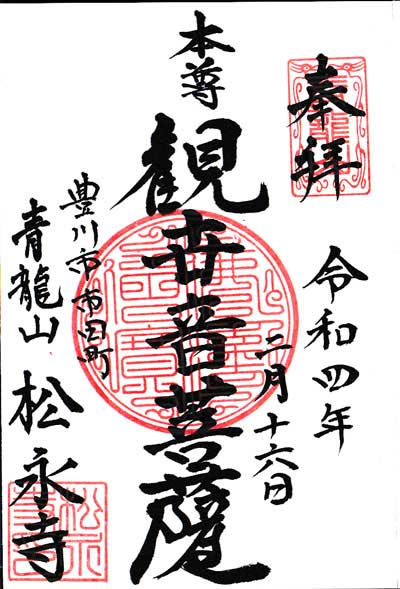 奉拝
令和四年
二月十六日
本尊
観世音菩薩
豊川市市田町
青龍山 松永寺